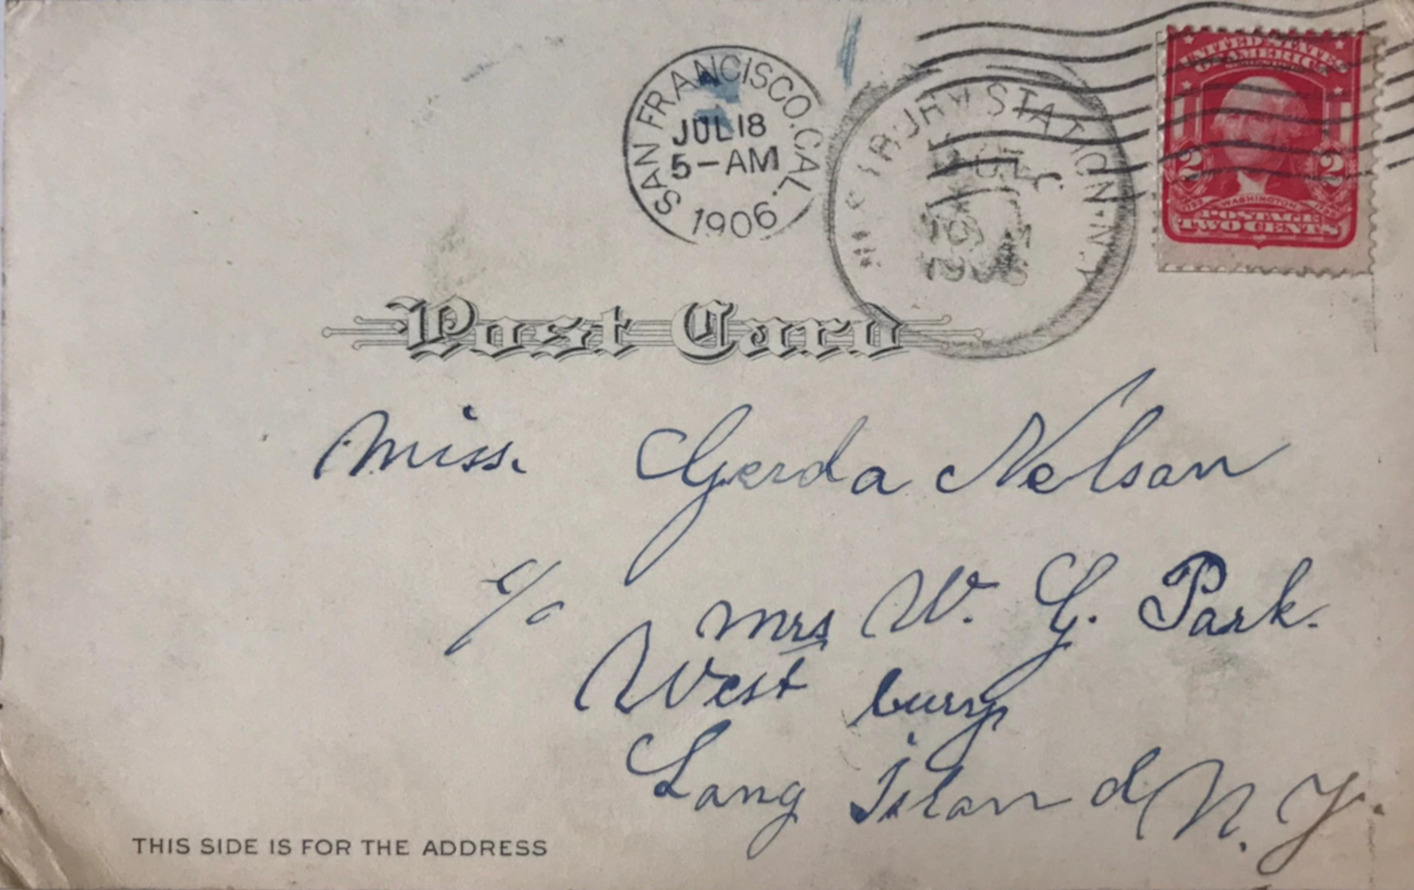 SAN FRANCISCO, CAL.
JUL 18
5-AM
1906
STATION N.Y.
REC.
UNITED STATES
OF AMERICA
2 2
WASHINGTON
POSTAGE
TWO CENTS
Post Card
Miss. Gerda Nelson
c/o Mrs W. G. Park.
West bury
Long Island N. Y.
THIS SIDE IS FOR THE ADDRESS